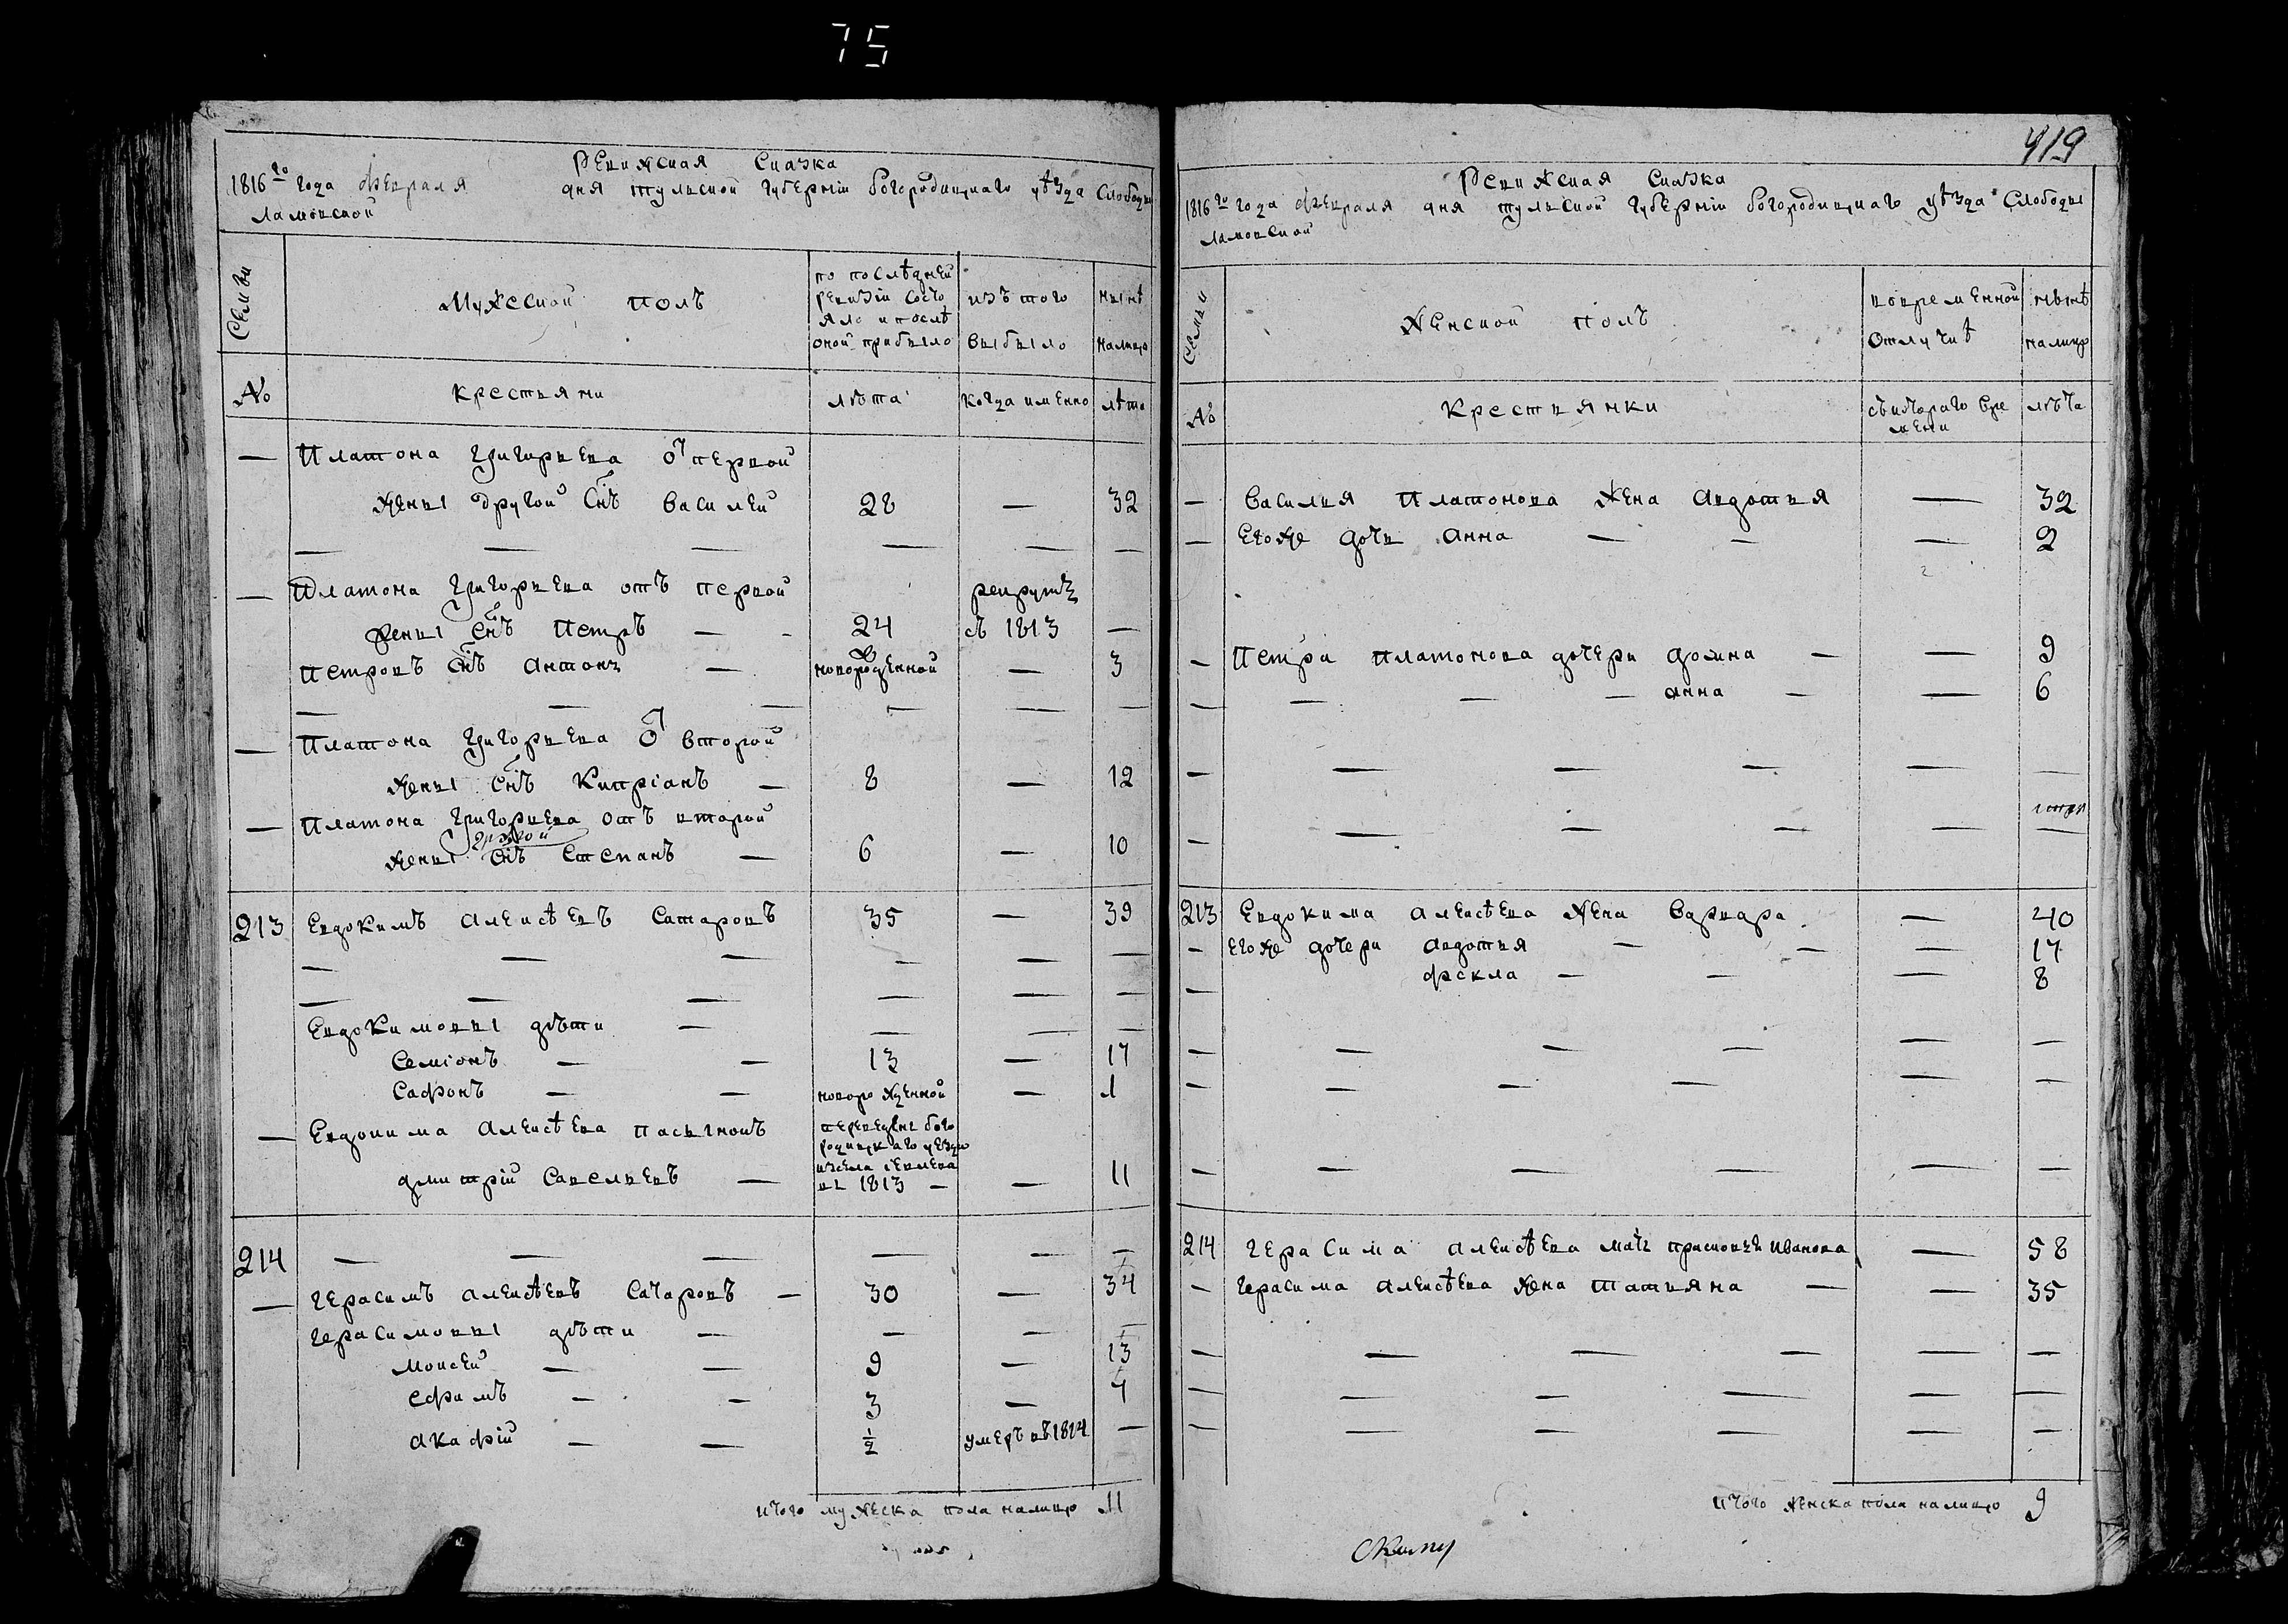 75
Ревижская Сказка
1816го года февраля дня тульской губерніи богородицкаго уѣзда Слободы
Ламовской
Семьи
Мужеской полъ
по послѣдней
ревизіи состо
яло и послѣ
оной прибыло
изъ того
выбыло
нынѣ
налицо
№
крестьяни
лѣта
когда именно
лѣта
— Платона Григорьева от первой
жены другой Снъ Василей 28 — 32
— — — — — —
— Платона Григорьева отъ первой рекрутъ
жены снъ Петръ — - 24 съ 1813 —
Петровъ Снъ Антонъ — новорожденной — 3
— — — — — —
— Платона Григорьева от второй
жены снъ Кипріанъ — 8 — 12
— Платона Григорьева отъ второй
другой
жены снъ Степанъ — 6 — 10
213 Евдокимъ Алексѣевъ Сатаровъ 35 — 39
— — — — — —
— — — — — —
Евдокимовы дѣти — — — —
Семіонъ — — 13 — 17
Сафонъ — — новорожденной — 1
— Евдокима Алексѣева пасынокъ
переведены бого
родицкаго уезда
изсела
въ 1813 —
дмитрій Савельевъ — — 11
214 — — — — — —
— Герасимъ Алексѣевъ Сатаровъ — 30 — 34
Герасимовы дѣти — — — —
Моисей — — 9 — 13
Ефимъ — — 3 — 7
Акафій — — ½ умеръ въ 1814 —
итого мужеска пола налицо 11
419
Ревижская Сказка
1816го года февраля дня тульской губерніи богородицкаго уѣзда Слободы
Ламовской
Семьи
Женской полъ
вовременной
отлучкѣ
нынѣ
налицо
№
Крестьянки
съ котораго вре
мени
лѣта
— Василья Платонова жена Авдотья — 32
— Егоже дочь Анна — — — 2
— Петра Платонова дочери Домна — — 9
— — — — анна — — 6
— — — — — —
— — — — — —
213 Евдокима Алексѣева жена Варвара — 40
— Егоже дочери Авдотья — — — 17
— фекла — — — 8
— — — — — —
— — — — — —
— — — — — —
214 Герасима Алексѣева мать Прасковья Иванова — 58
— Герасима Алексѣева жена Татьяна — — 35
— — — — — —
— — — — — —
— — — — — —
итого женска пола налицо 9